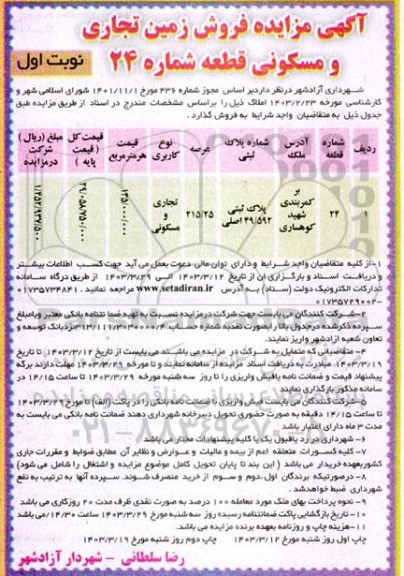 آگهی مزایده فروش زمین تجاری
و مسکونی قطعه شماره ۲۴
نوبت اول
شهرداری آزادشهر درنظر دارد بر اساس مجوز شماره ۴۳۶ مورخ ۱۴۰۱/۱۱/۱ شورای اسلامی شهر و
کارشناسی مورخه ۱۴۰۳/۲/۲۳ املاک ذیل را براساس مشخصات مندرج در اسناد از طریق مزایده طبق
جدول ذیل به متقاضیان واجد شرایط به فروش گذارد.
ردیف
شماره قطعه
آدرس ملک
شماره پلاک ثبتی
عرصه
نوع کاربری
قیمت هر مترمربع
قیمت کل (قیمت پایه)
مبلغ (ریال) شرکت در مزایده
۱
۲۴
بر کمربندی شهید کوهساری
پلاک ثبتی ۴۹/۵۹۲ اصلی
۲۱۵/۲۵
تجاری و مسکونی
۱۳۵/۰۰۰/۰۰۰
۱-از کلیه متقاضیان واجد شرایط و دارای توان مالی دعوت بعمل می آید جهت کسب اطلاعات بیشتر
و دریافت اسناد و بارگزاری آن از تاریخ ۱۴۰۳/۳/۱۲ الی ۱۴۰۳/۳/۲۹ از طریق درگاه سامانه
تدارکات الکترونیک دولت (ستاد) به آدرس www.setadiran.ir مراجعه نمایند. ۰۱۷۳۵۷۳۴۸۴۱
-۰۱۷۳۵۷۲۹۰۰۲
۲-شرکت کنندگان می بایست جهت شرکت در مزایده نسبت به تهیه ضمانتنامه بانکی معتبر و یا مبلغ
سپرده ذکر شده در جدول بالا را بصورت نقد به شماره حساب نزد بانک توسعه و
تعاون شعبه آزادشهر واریز نمایند.
۴- متقاضیانی که متمایل به شرکت در مزایده می باشند می بایست از تاریخ ۱۴۰۳/۳/۱۲ تا تاریخ
۱۴۰۳/۳/۱۹ مبادرت به دریافت اسناد مزایده از سامانه نمایند و تا مورخه ۱۴۰۳/۳/۲۹ مهلت دارند برگه
پیشنهاد قیمت و ضمانت نامه یا فیش واریزی را تا روز سه شنبه مورخه ۱۴۰۳/۳/۲۹ تا ساعت ۱۴/۱۵ در
سامانه مذکور بارگذاری نمایند
۵-شرکت کنندگان می بایست فیش واریزی یا ضمانت نامه بانکی را در پاکت (الف) تا مورخ ۱۴۰۳/۳/۲۹
تا ساعت ۱۴/۱۵ دقیقه به صورت حضوری تحویل دبیرخانه شهرداری دهند ضمانت نامه بانکی می بایست به
مدت ۳ ماه دارای اعتبار باشد
۶-شهرداری در رد یا قبول یک یا کلیه پیشنهادات مختار می باشد
۷-کلیه کسورات متعلقه اعم از بیمه و مالیات و عوارض و نظایر آن مطابق ضوابط و مقررات جاری
کشور بعهده خریدار می باشد (این بند تا پایان تحویل کامل موضوع مزایده و اشتغال را شامل می شود)
۸-درصورتیکه برندگان اول، دوم و سوم از خرید منصرف شوند. سپرده آنها به ترتیب به نفع
شهرداری ضبط خواهد شد.
۹- نحوه پرداخت بهای ملک مورد معامله ۱۰۰ درصد به صورت نقدی ظرف مدت ۲۰ روز کاری می باشد
۱۰- تاریخ بازگشایی پاکت ضمانتنامه رسیده روز سه شنبه مورخ ۱۴۰۳/۳/۲۹ ساعت ۱۴/۳۰ می باشد
۱۱-هزینه چاپ و روزنامه بعهده برنده مزایده می باشد.
چاپ اول روز شنبه مورخ ۱۴۰۳/۳/۱۲ چاپ دوم روز شنبه مورخ ۱۴۰۳/۳/۱۹
رضا سلطانی - شهردار آزادشهر